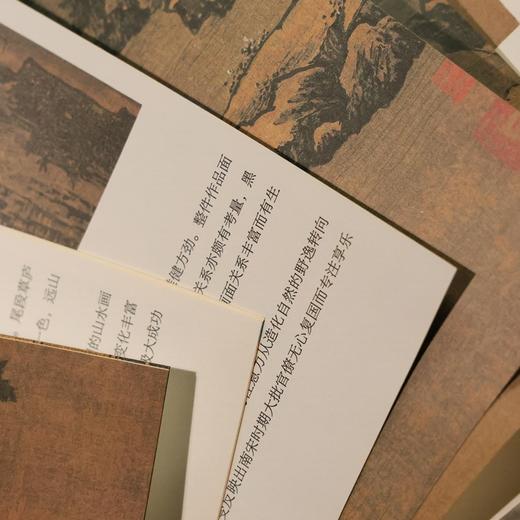 健方劲。整件作品面
关系亦颇有考量，黑
画面关系丰富而有生
意力从造化自然的野逸转向
反映出南宋时期大批官僚无心复国而专注享乐
尾段草庐
色，远山
的山水画
变化丰富
极大成功